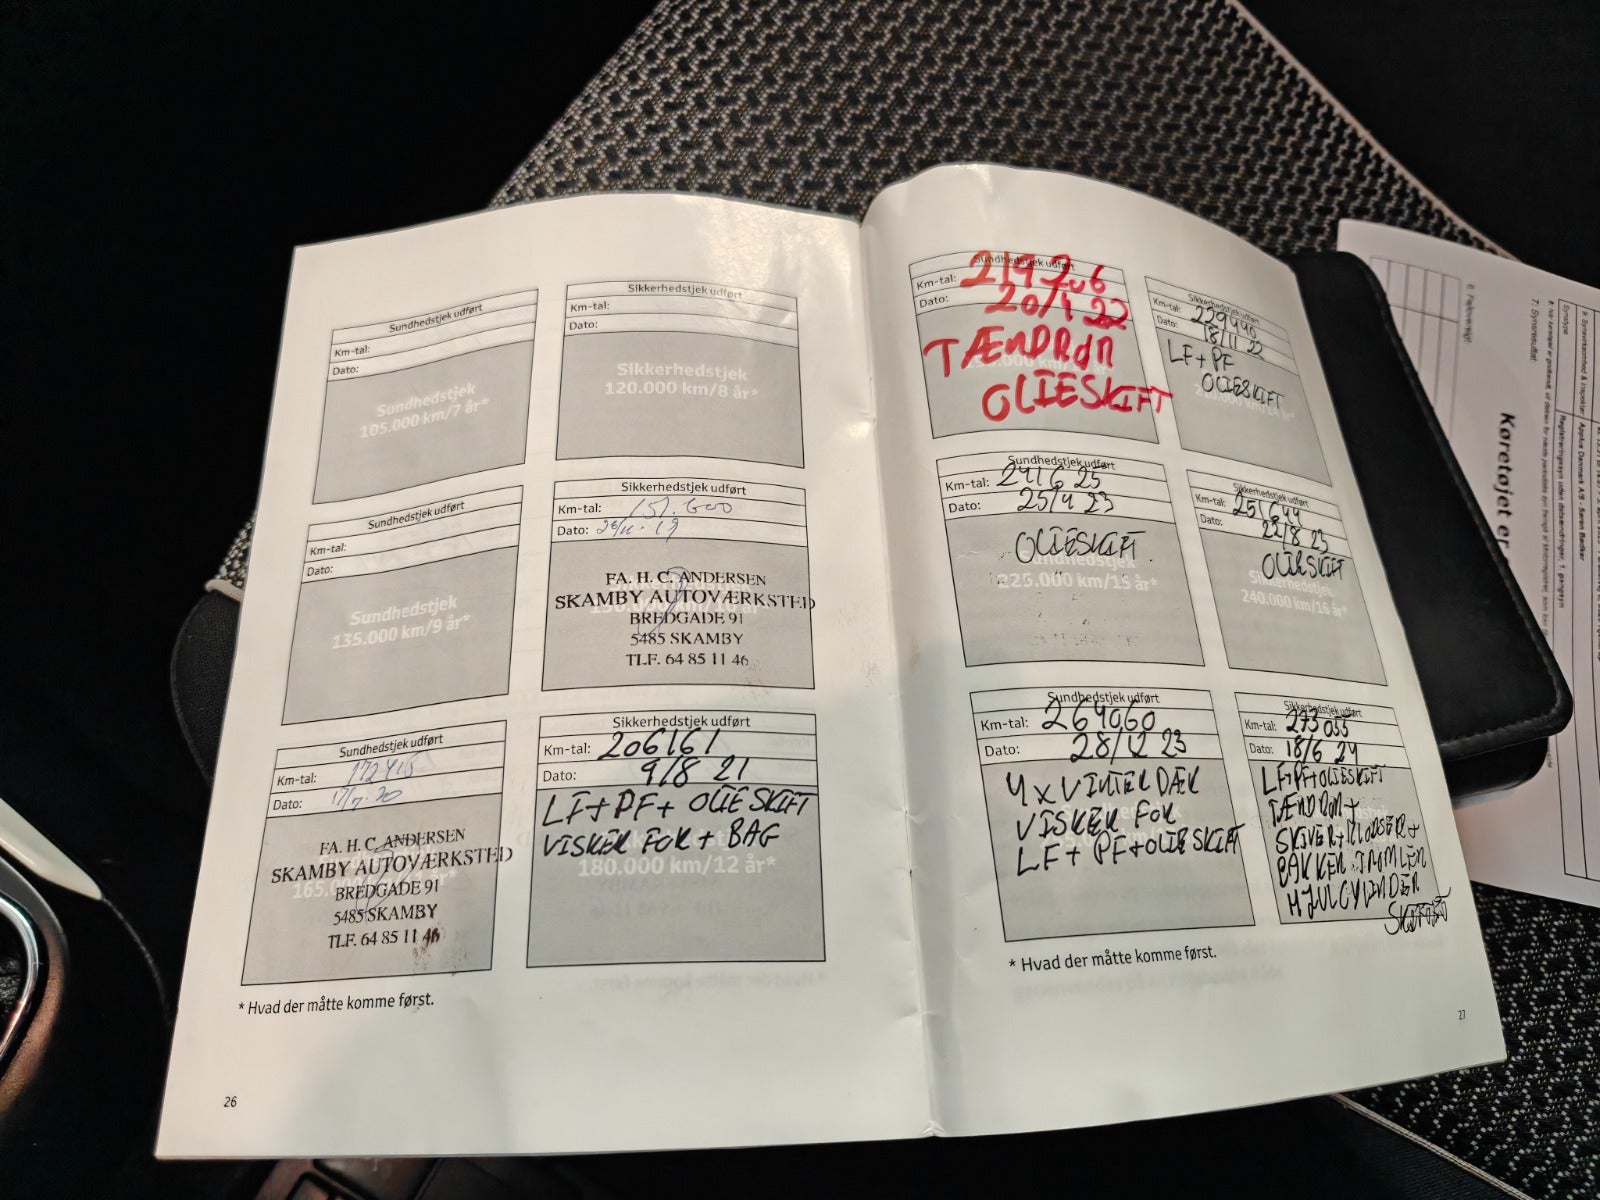 Sundhedstjek udført
Km-tal:
Dato:
Sundhedstjek
105.000 km/7 år*
Sikkerhedstjek udført
Km-tal:
Dato:
Sikkerhedstjek
120.000 km/8 år*
Sundhedstjek udført
Km-tal:
Dato:
Sundhedstjek
135.000 km/9 år*
Sikkerhedstjek udført
Km-tal: 151.600
Dato:
FA. H. C. ANDERSEN
SKAMBY AUTOVÆRKSTED
BREDGADE 91
5485 SKAMBY
TLF. 64 85 11 46
Sundhedstjek udført
Km-tal:
Dato: 17/7.20
FA. H. C. ANDERSEN
SKAMBY AUTOVÆRKSTED
165.000
BREDGADE 91
5485 SKAMBY
TLF. 64 85 11 46
Sikkerhedstjek udført
Km-tal: 206161
Dato: 9/8 21
LF+PF+ OLIESKIFT
VISKER FOR + BAG
180.000 km/12 år*
* Hvad der måtte komme først.
26
Sundhedstjek udført
Km-tal: 219206
Dato: 20/4 22
TÆNDRØR
OLIESKIFT
Sikkerhedstjek udført
Km-tal: 229440
Dato: 18/11 22
LF+PF
OLIESKIFT
Sundhedstjek udført
Km-tal: 241625
Dato: 25/4 23
OLIESKIFT
225.000 km/15 år*
Sikkerhedstjek udført
Km-tal: 251644
Dato: 22/8 23
OLIESKIFT
Sikkerhedstjek
240.000 km/16 år*
Sundhedstjek udført
Km-tal: 264060
Dato: 28/12 23
4x VINTERDÆK
VISKER FOR
LF+ PF+OLIESKIFT
Sikkerhedstjek udført
Km-tal: 273055
Dato: 18/6 24
LF+PF+OLIESKIFT
TÆNDRØR+
SKIVER+KLODSER+
BAKKER TROMLER
HJULCYLINDER
* Hvad der måtte komme først.
27
Køretøjet er
7. Synsresultat: